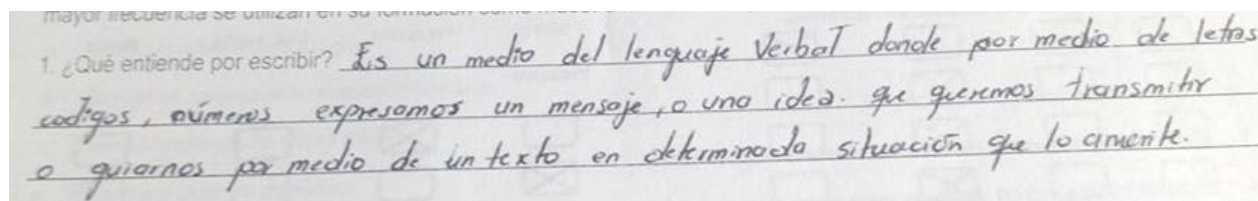 mayor frecuencia se utilizan en su formación como
1. ¿Qué entiende por escribir? Es un medio del lenguaje verbal donde por medio de letras
codigos, números expresamos un mensaje, o una idea. que queremos transmitir
o guiarnos por medio de un texto en determinada situación que lo amerite.